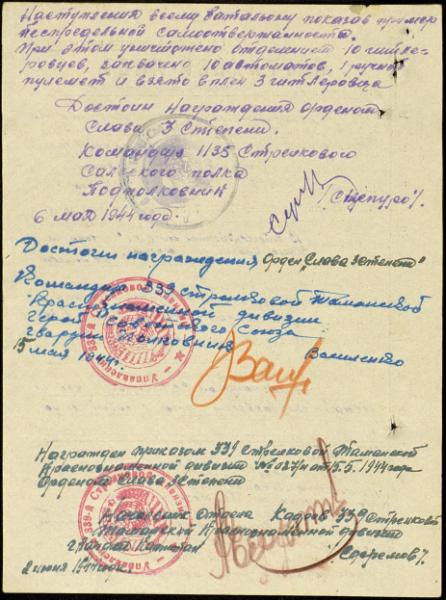 наступления всему батальону показав пример
беспредельной самоотверженности.
При этом уничтожено отделением 10 гитле-
ровцев, захвачено 10 автоматов, 1 ручной
пулемет и взято в плен 3 гитлеровца
Достоин награждения орденом
Слава 3 степени.
Командир 1135 Стрелкового
Сал ского полка
Подполковник /Сцепуро/.
6 мая 1944 года.
Достоин награждения орден „Слава 3 степени"
Командир 339 стрелковой Таманской
Краснознаменной дивизии
Герой Советского Союза
гвардии полковник Василенко
15 мая 1944г.
Награжден приказом 339 Стрелковой Таманской
Краснознаменной дивизии № 027/н от 15.5.1944 года
Орденом Слава 3 степени
Начальник Отдела Кадров 339 Стрелковой
Таманской Краснознаменной дивизии
гвардии капитан /Ефремов/.
2 июня 1944 года
Управление 339-й Стрелковой дивизии
339-й Стрелковой дивизии